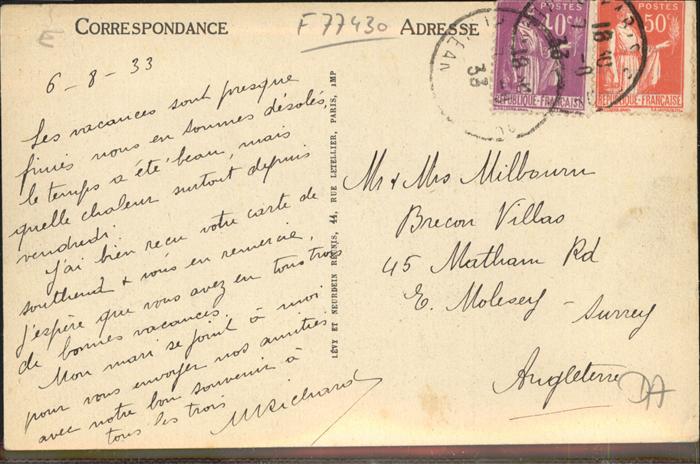 E
CORRESPONDANCE
F 77430
ADRESSE
6-8-33
Les vacances sont presque
finies nous en sommes désolés,
le temps a été beau, mais
quelle chaleur surtout depuis
vendredi.
J'ai bien reçu votre carte de
southend & vous en remercie,
j'espère que vous avez eu tous trois
de bonnes vacances.
Mon mari se joint à moi
pour vous envoyer nos amitiés
avec notre bon souvenir à
tous les trois
MRichard
LÉVY ET NEURDEIN RÉUNIS, 44, RUE LETELLIER, PARIS, IMP
POSTES
40c
RÉPUBLIQUE-FRANÇAISE
POSTES
50c
RÉPUBLIQUE-FRANÇAISE
33
Mr & Mrs Milbourn
Brecon Villas
45 Matham Rd
E. Molesey - Surrey
Angleterre
DA